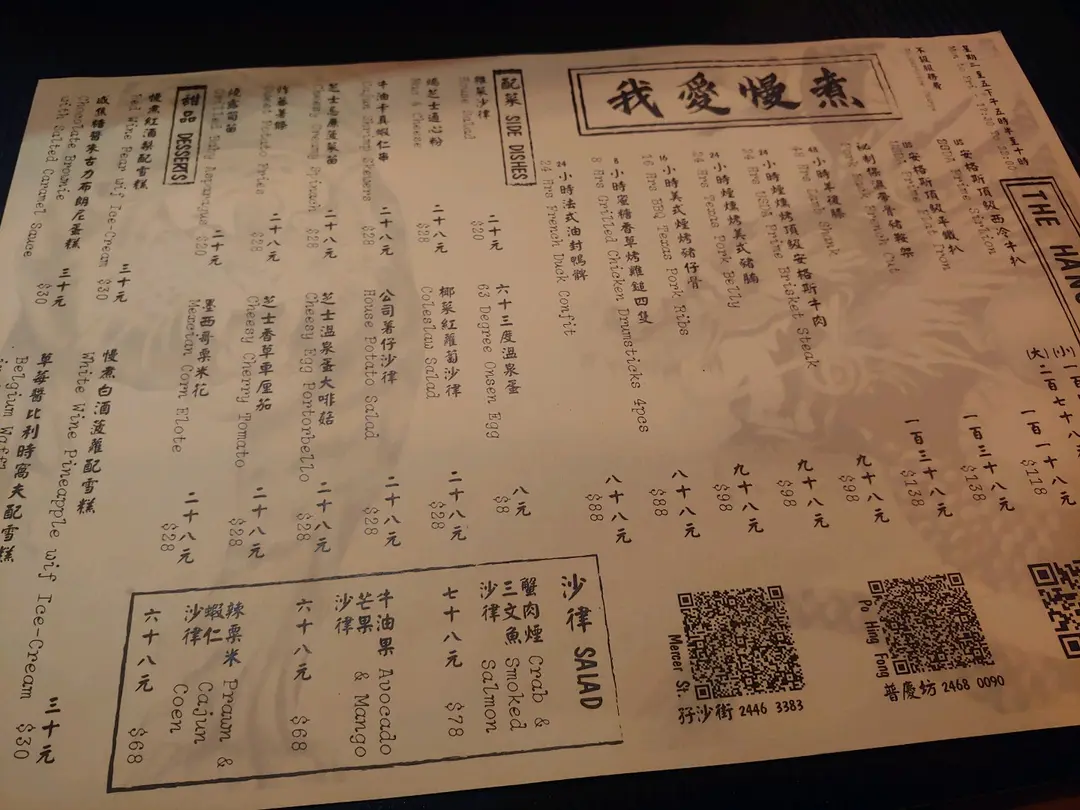 星期二至五下午五時半至十時
不設服務費
THE HANG
(小)一百一十八元
$118
(大)二百七十八
安格斯頂級西冷牛扒
USDA Prime Striploin
一百三十八元
$138
安格斯頂級平鐵扒
USDA Prime Flat Iron
一百三十八元
$138
秘制骚源帶骨豬鞍架
Pork Rack French Cut
九十八元
$98
我愛慢煮
48小時羊後膝
48 Hrs Lamb Shank
九十八元
$98
24小時煙燻烤頂級安格斯牛肉
24 Hrs USDA Prime Brisket Steak
九十八元
$98
24小時煙燻烤美式豬腩
24 Hrs Texas Pork Belly
八十八元
$88
16小時美式煙烤豬仔骨
16 Hrs BBQ Texas Pork Ribs
八十八元
$88
8小時蜜糖香草烤雞鎚四隻
8 Hrs Grilled Chicken Drumsticks 4pcs
24小時法式油封鴨髀
24 Hrs French Duck Confit
配菜 SIDE DISHES
雜菜沙律
House Salad
二十元
$20
六十三度溫泉蛋
63 Degree Onsen Egg
八元
$8
焗芝士通心粉
Mac & Cheese
二十八元
$28
椰菜紅蘿蔔沙律
Coleslaw Salad
二十八元
$28
牛油卡真蝦仁串
Cajun Shrimp Skewers
二十八元
$28
公司薯仔沙律
House Potato Salad
二十八元
$28
芝士忌廉菠菜苗
Cheesy Creamy Spinach
二十八元
$28
芝士溫泉蛋大啡菇
Cheesy Egg Portorbello
二十八元
$28
炸蕃薯條
Sweet Potato Fries
二十八元
$28
芝士香草車厘茄
Cheesy Cherry Tomato
二十八元
$28
燒露荀苗
Grilled Baby Asparagus
三十元
$30
墨西哥粟米花
Mexcian Corn Elote
二十八元
$28
甜品 DESSERTS
慢煮紅酒梨配雪糕
Red Wine Pear wif Ice-Cream
三十元
$30
慢煮白酒菠蘿配雪糕
White Wine Pineapple wif Ice-Cream
三十元
$30
咸焦糖醬朱古力布朗尼蛋糕
Chocolate Brownie
with Salted Caramel Sauce
三十元
$30
草莓醬比利時窩夫配雪糕
Belgium Waff
沙律 SALAD
蟹肉煙三文魚沙律
Crab & Smoked Salmon
七十八元
$78
牛油果芒果沙律
Avocado & Mango
六十八元
$68
辣粟米蝦仁沙律
Prawn & Cajun Coen
六十八元
$68
Po Hing Fong
普慶坊 2468 0090
Mercer St.
孖沙街 2446 3383